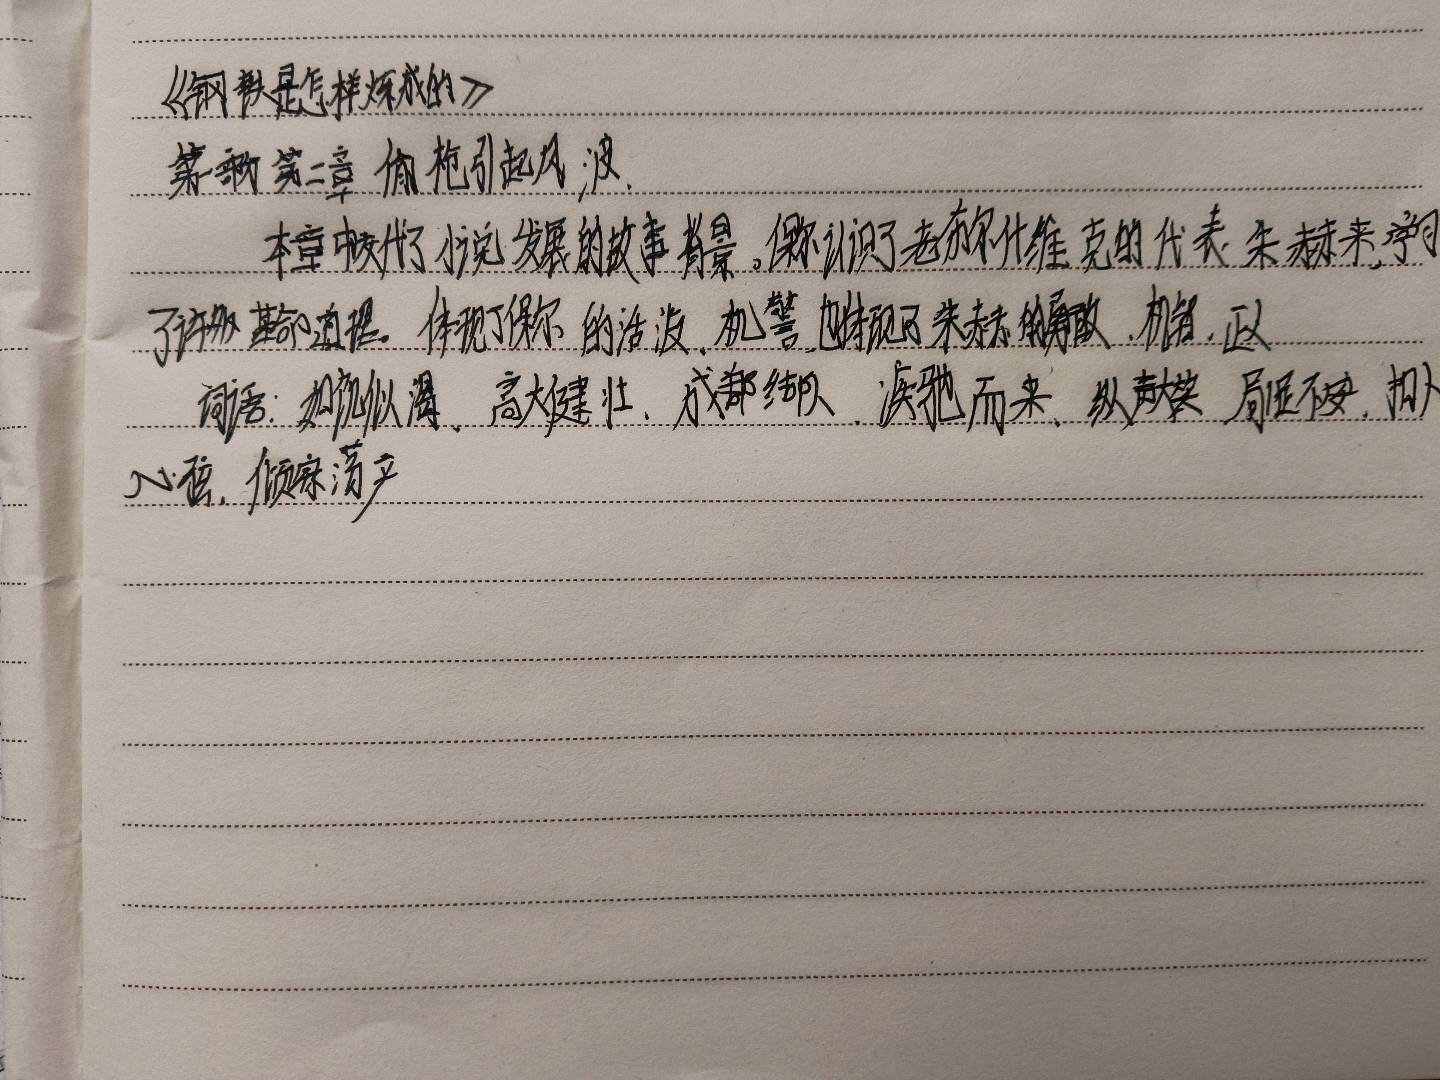 《钢铁是怎样炼成的》
第一部 第二章 偷枪引起风波.
本章中交代了小说发展的故事背景。保尔认识了老布尔什维克的代表朱赫来,学习
了许多革命道理。体现了保尔的活泼、机警,也体现了朱赫来的勇敢、机智、正义
词语:如饥似渴、高大健壮、成群结队、疾驰而来、纵声大笑 局促不安、扣人
心弦、倾家荡产